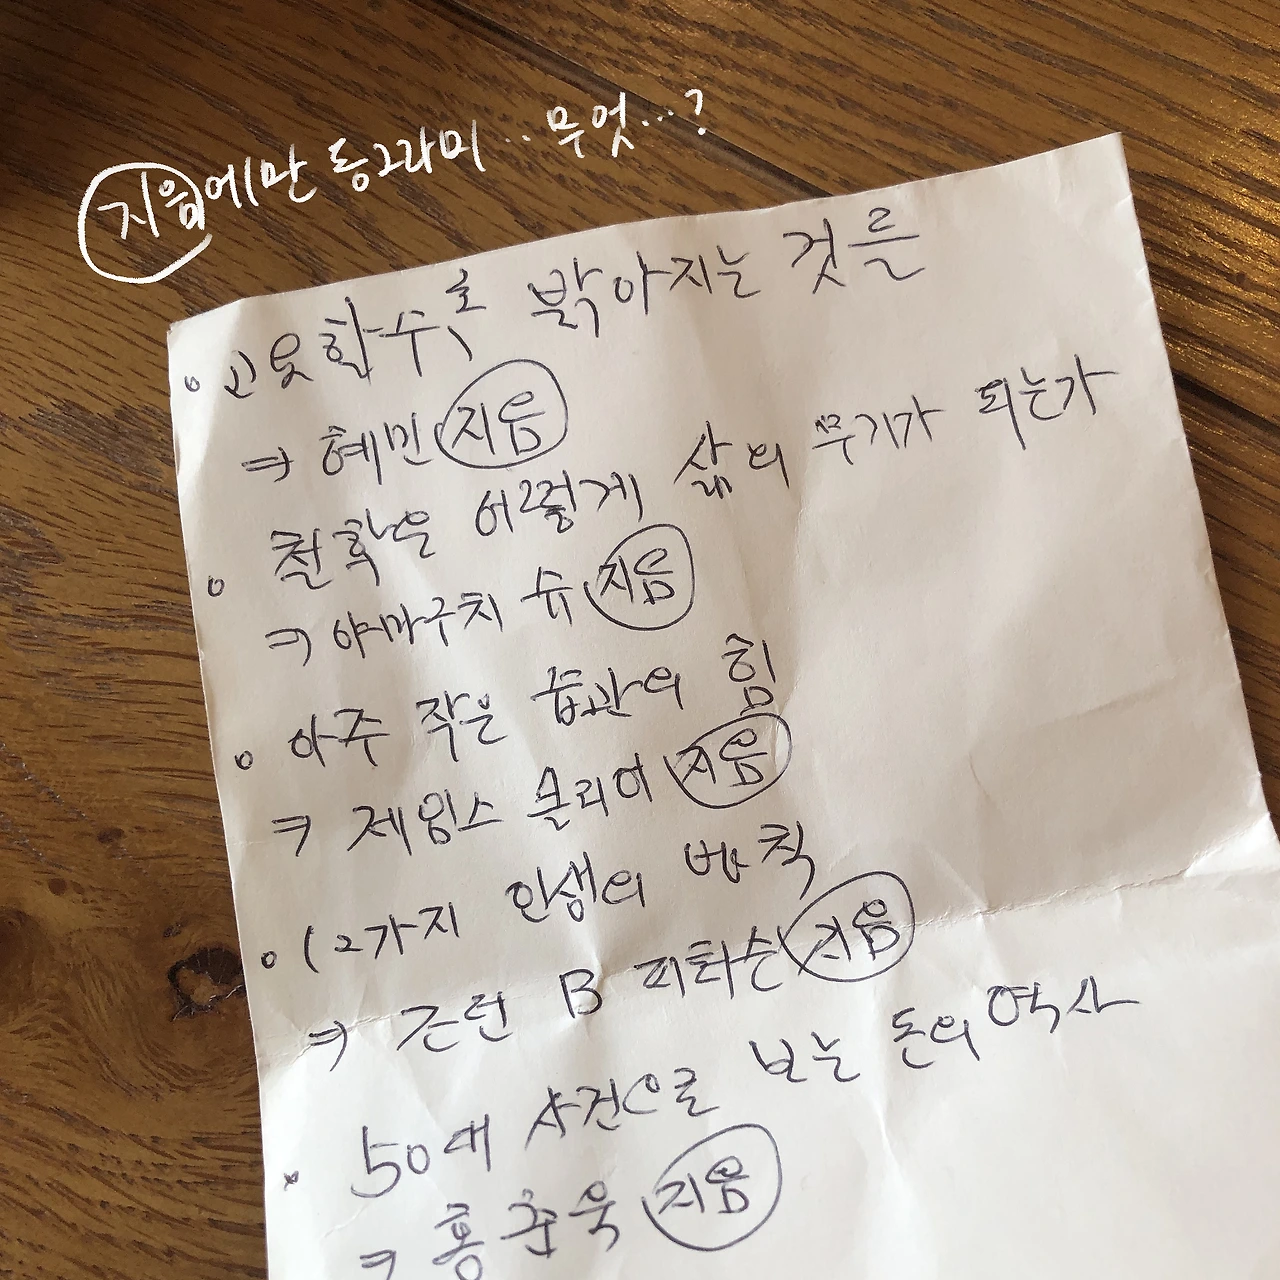 지음에만 동그라미...무엇...?
고요할수록 밝아지는 것들
⇒ 혜민 지음
철학은 어떻게 삶의 무기가 되는가
⇒ 야마구치 슈 지음
아주 작은 습관의 힘
⇒ 제임스 클리어 지음
12가지 인생의 법칙
⇒ 조던 B 피터슨 지음
50대 사건으로 보는 돈의 역사
⇒ 홍춘욱 지음